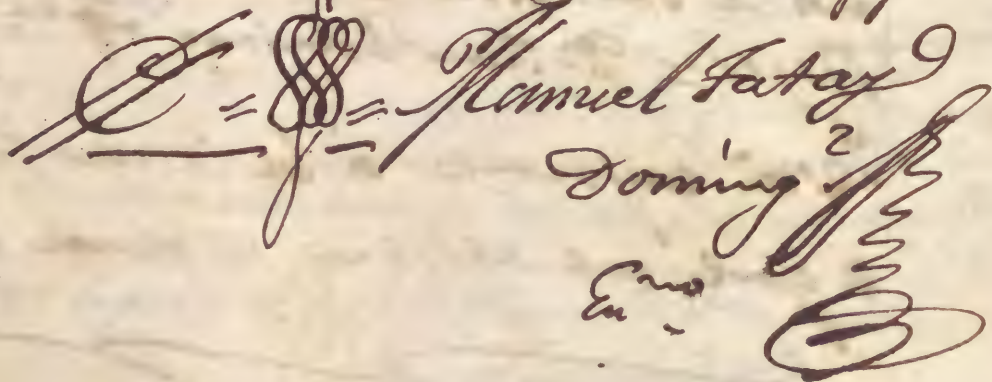 Manuel Fatay
Doming²
Em.ᵐᵒ